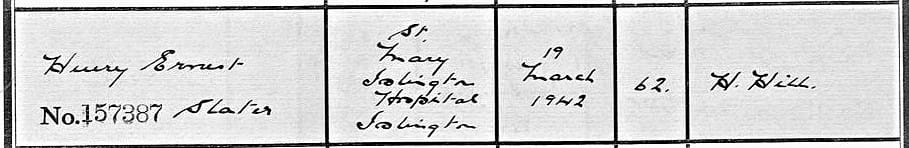 Henry Ernest
No. 157387 Slater
St.
Mary
Islington
Hospital
Islington
19
March
1942
62.
H. Hill.